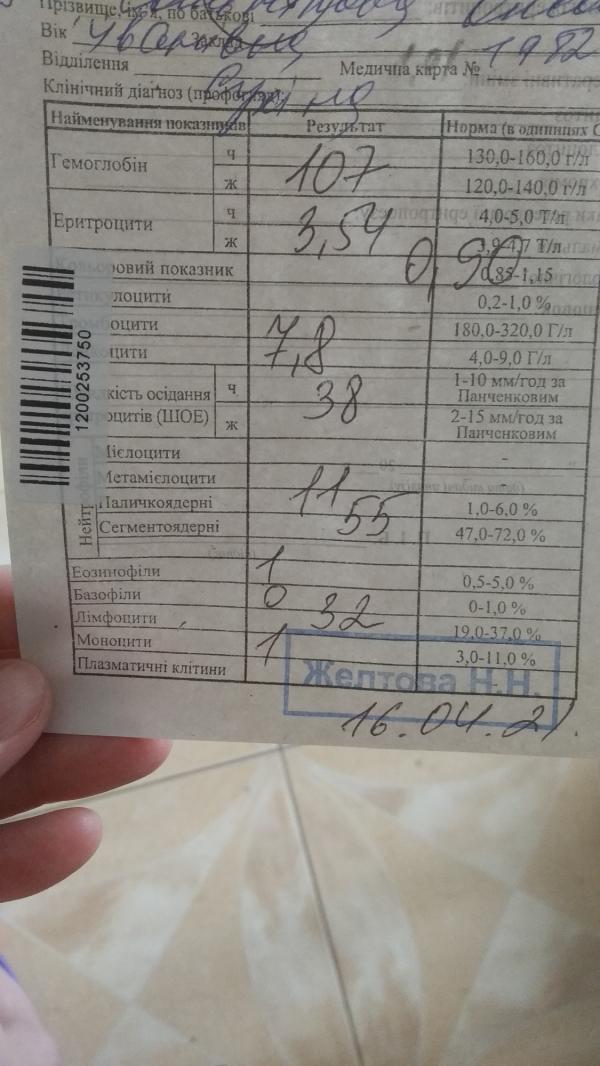 Прізвище, ім'я, по батькові
Вік 1982
Відділення Медична карта №
Клінічний діагноз
Найменування показників Результат Норма (в одиницях С
Гемоглобін ч 107 130,0-160,0 г/л
ж 120,0-140,0 г/л
Еритроцити ч 3,54 4,0-5,0 Т/л
ж 3,9-4,7 Т/л
ровий показник 0,90 0,85-1,15
лоцити 0,2-1,0 %
оцити 180,0-320,0 Г/л
оцити 7,8 4,0-9,0 Г/л
кість осідання ч 38 1-10 мм/год за
Панченковим
роцитів (ШОЕ) ж 2-15 мм/год за
Панченковим
1200253750
Нейт
Мієлоцити -
Метамієлоцити -
Паличкоядерні 11 1,0-6,0 %
Сегментоядерні 55 47,0-72,0 %
Еозинофіли 1 0,5-5,0 %
Базофіли 0 0-1,0 %
Лімфоцити 32 19,0-37,0 %
Моноцити 1 3,0-11,0 %
Плазматичні клітини
Желтова Н.Н.
16.04.21.